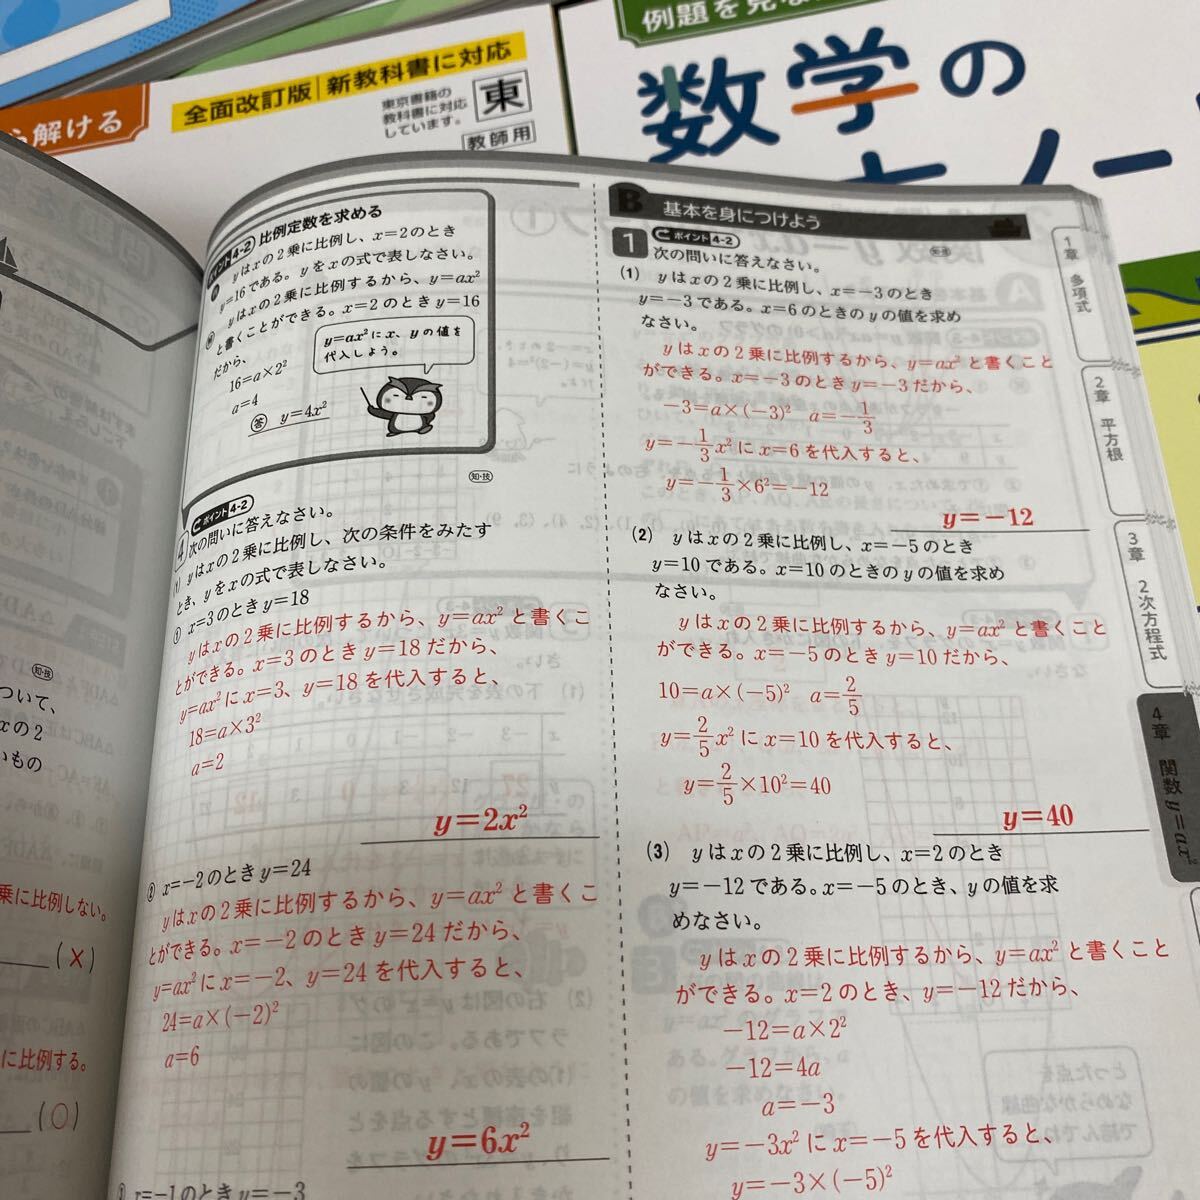 ら解ける
全面改訂版 新教科書に対応
東京書籍の
教科書に対応
しています。
東
教師用
例題を見な
数学の
ノー
ポイント4-2 比例定数を求める
yはxの2乗に比例し、x=2のとき
y=16である。yをxの式で表しなさい。
yはxの2乗に比例するから、y=ax²
と書くことができる。x=2のときy=16
だから、
16=a×2²
a=4
答 y=4x²
y=ax²にx、yの値を
代入しよう。
知・技
ポイント4-2
4 次の問いに答えなさい。
(1) yはxの2乗に比例し、次の条件をみたす
とき、yをxの式で表しなさい。
① x=3のときy=18
yはxの2乗に比例するから、y=ax²と書くこ
とができる。x=3のときy=18だから、
y=ax²にx=3、y=18を代入すると、
18=a×3²
a=2
y=2x²
② x=-2のときy=24
yはxの2乗に比例するから、y=ax²と書くこ
とができる。x=-2のときy=24だから、
y=ax²にx=-2、y=24を代入すると、
24=a×(-2)²
a=6
y=6x²
x=-1のときy=-3
知・技
ついて、
xの2
いもの
乗に比例しない。
(×)
に比例する。
(○)
B 基本を身につけよう
1 ポイント4-2
次の問いに答えなさい。
(1) yはxの2乗に比例し、x=-3のとき
y=-3である。x=6のときのyの値を求め
なさい。
yはxの2乗に比例するから、y=ax²と書くこと
ができる。x=-3のときy=-3だから、
-3=a×(-3)² a=-1/3
y=-1/3x²にx=6を代入すると、
y=-1/3×6²=-12
y=-12
(2) yはxの2乗に比例し、x=-5のとき
y=10である。x=10のときのyの値を求め
なさい。
yはxの2乗に比例するから、y=ax²と書くこと
ができる。x=-5のときy=10だから、
10=a×(-5)² a=2/5
y=2/5x²にx=10を代入すると、
y=2/5×10²=40
y=40
(3) yはxの2乗に比例し、x=2のとき
y=-12である。x=-5のとき、yの値を求
めなさい。
yはxの2乗に比例するから、y=ax²と書くこと
ができる。x=2のとき、y=-12だから、
-12=a×2²
-12=4a
a=-3
y=-3x²にx=-5を代入すると、
y=-3×(-5)²
1章 多項式
2章 平方根
3章 2次方程式
4章 関数y=ax²